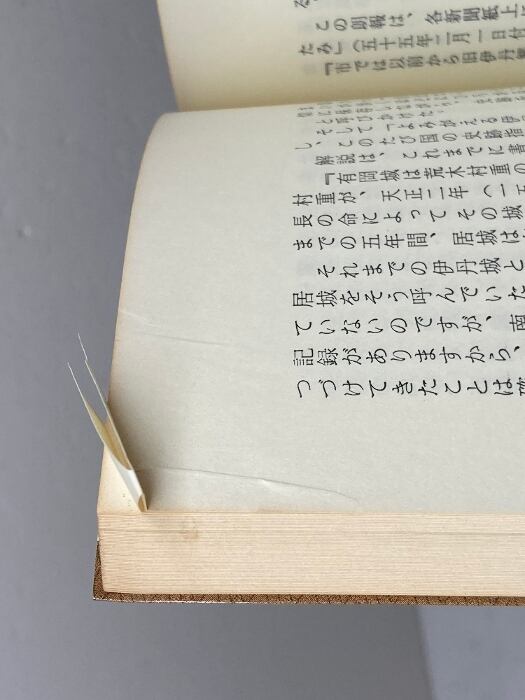 この朗報は、各新聞紙上に
たみ」(五十五年二月一日付
『市では以前から旧伊丹
と呼びかけた。
そして「よみがえる伊
し、このたび国の史跡指
解説は、これまでに書
『有岡城は荒木村重の
村重が、天正二年(一五
長の命によってその城
までの五年間、居城は
それまでの伊丹城と
居城をそう呼んでいた
ていないのですが、南
記録がありますから、
つづけてきたことは